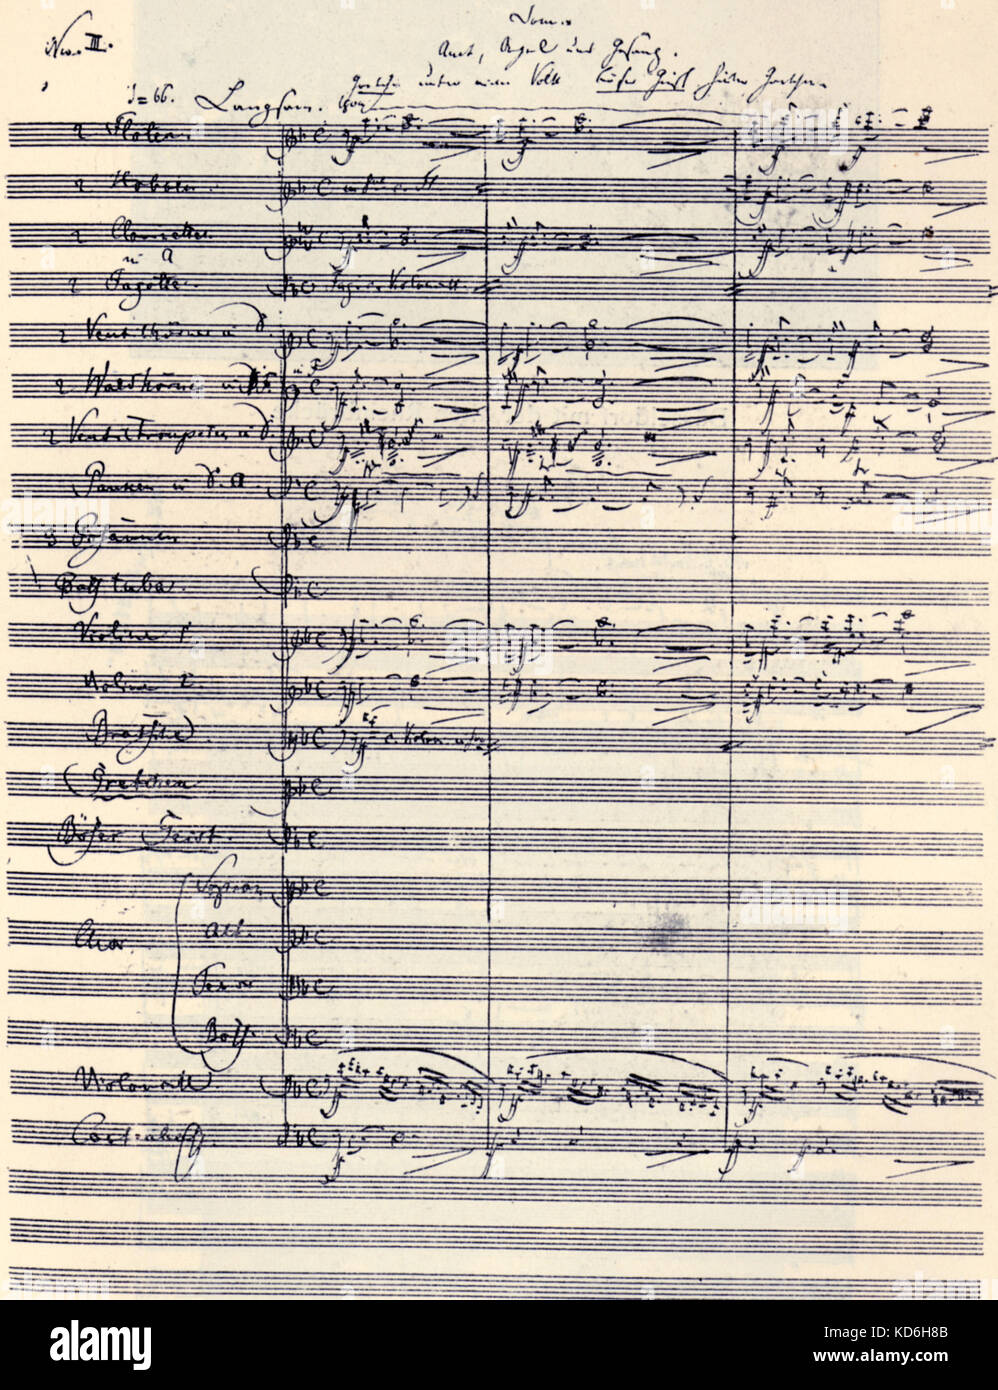 No. III.
Dom.
Amt, Orgel und Gesang.
Gretchen unter vielem Volk Böser Geist hinter Gretchen.
♩=66. Langsam.
2 Flöten
2 Hoboen.
2 Clarinetten
in A
2 Fagotten
2 Ventilhörner in
2 Waldhörner in
2 Ventiltrompeten in
Pauken in D. A.
3 Posaunen
Bass tuba.
Violine 1
Violine 2.
Bratsche.
Gretchen
Böser Geist.
Sopran
Chor.
Alt.
Tenor
Bass.
Violoncell
Contrabass.
alamy
Image ID: KD6H8B
www.alamy.com